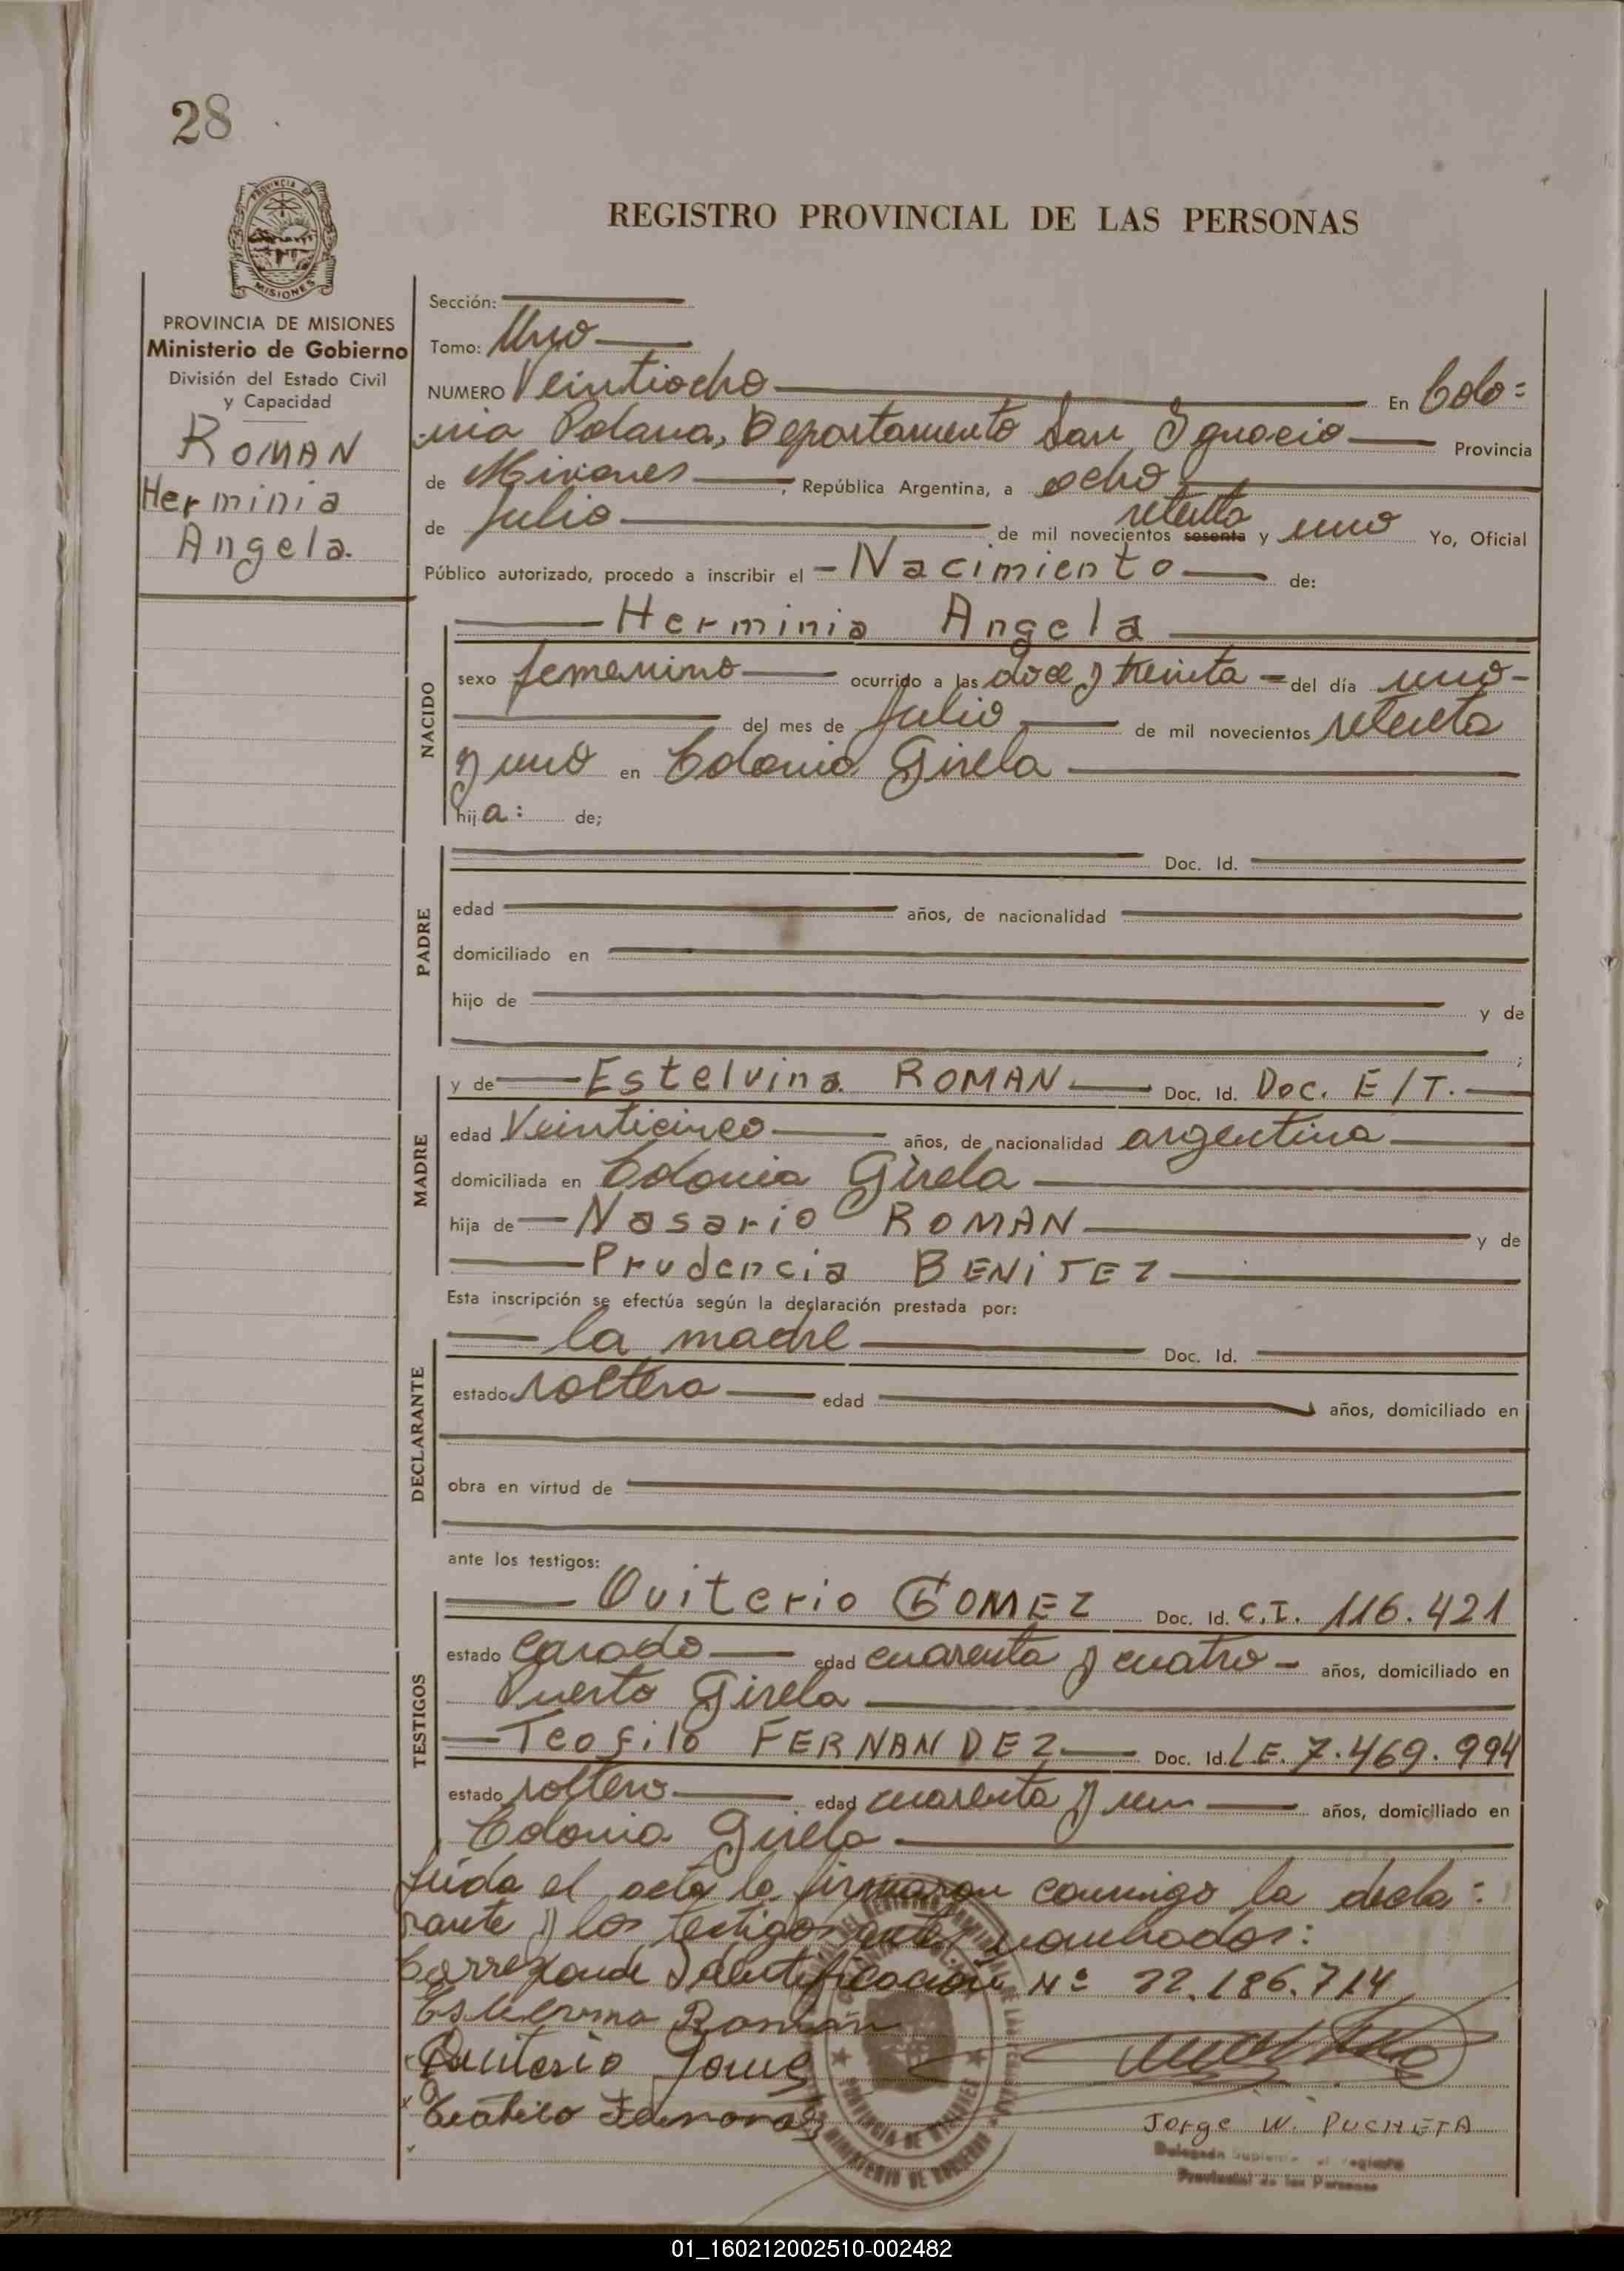 28
PROVINCIA DE
MISIONES
REGISTRO PROVINCIAL DE LAS PERSONAS
PROVINCIA DE MISIONES
Ministerio de Gobierno
División del Estado Civil
y Capacidad
ROMAN
Herminia
Angela.
Sección:
Tomo: Uno
NUMERO Veintiocho En Colo=
nia Polana, Departamento San Ignacio Provincia
de Misiones, República Argentina, a ocho
de Julio de mil novecientos sesenta setenta y uno Yo, Oficial
Público autorizado, procedo a inscribir el - Nacimiento de:
NACIDO
Herminia Angela
sexo femenino ocurrido a las doce y treinta = del día uno -
del mes de Julio de mil novecientos setenta
y uno en Colonia Gisela
hija: de;
PADRE
Doc. Id.
edad años, de nacionalidad
domiciliado en
hijo de y de
;
MADRE
y de Estelvina ROMAN Doc. Id. Doc. E/T.
edad Veinticinco años, de nacionalidad argentina
domiciliada en Colonia Gisela
hija de Nasario ROMAN y de
Prudencia BENITEZ
Esta inscripción se efectúa según la declaración prestada por:
DECLARANTE
la madre Doc. Id.
estado soltera edad años, domiciliado en
obra en virtud de
ante los testigos:
TESTIGOS
Quiterio GOMEZ Doc. Id. C.I. 116.421
estado Casado edad cuarenta y cuatro - años, domiciliado en
Puerto Gisela
Teofilo FERNANDEZ Doc. Id. L.E. 7.469.994
estado soltero edad cuarenta y un años, domiciliado en
Colonia Gisela
Leída el acta la firmaron conmigo la decla=
rante y los testigos ante nombrados:
Corresponde Identificación Nº 22.186.714
Estelvina Román
Quiterio Gomez
Teofilo Fernandez
PROVINCIA DE MISIONES
MINISTERIO DE GOBIERNO
Jorge W. PUCHETA
Delegado Suplente del Registro
Provincial de las Personas
01_160212002510-002482